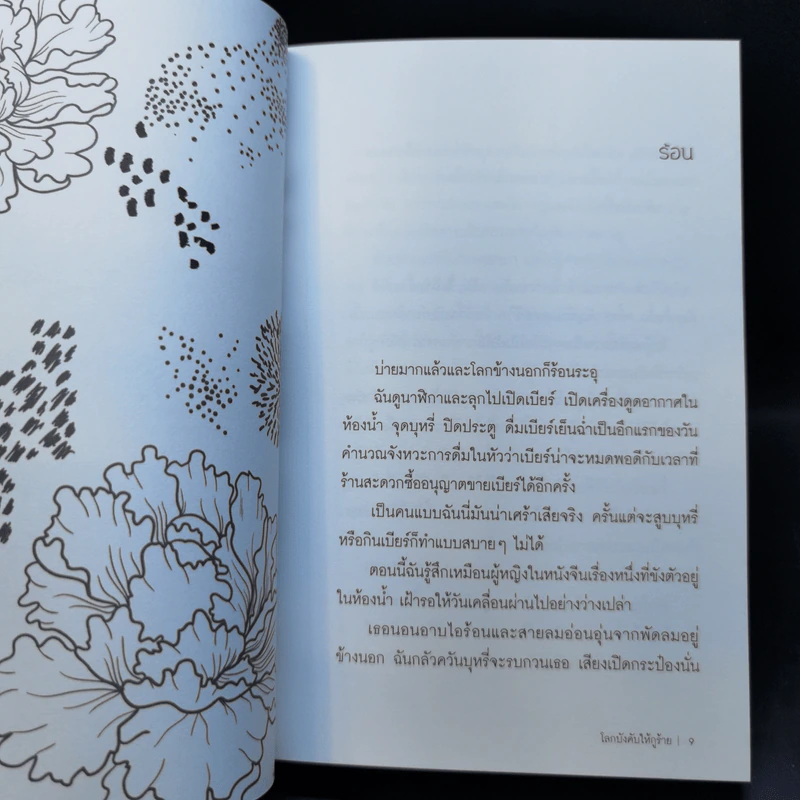 ร้อน
บ่ายมากแล้วและโลกข้างนอกก็ร้อนระอุ
ฉันดูนาฬิกาและลุกไปเปิดเบียร์ เปิดเครื่องดูดอากาศใน
ห้องน้ำ จุดบุหรี่ ปิดประตู ดื่มเบียร์เย็นฉ่ำเป็นอึกแรกของวัน
คำนวณจังหวะการดื่มในหัวว่าเบียร์น่าจะหมดพอดีกับเวลาที่
ร้านสะดวกซื้ออนุญาตขายเบียร์ได้อีกครั้ง
เป็นคนแบบฉันนี่มันน่าเศร้าเสียจริง ครั้นแต่จะสูบบุหรี่
หรือกินเบียร์ก็ทำแบบสบายๆ ไม่ได้
ตอนนี้ฉันรู้สึกเหมือนผู้หญิงในหนังจีนเรื่องหนึ่งที่ขังตัวอยู่
ในห้องน้ำ เฝ้ารอให้วันเคลื่อนผ่านไปอย่างว่างเปล่า
เธอนอนอาบไอร้อนและสายลมอ่อนอุ่นจากพัดลมอยู่
ข้างนอก ฉันกลัวควันบุหรี่จะรบกวนเธอ เสียงเปิดกระป๋องนั่น
โลกบังคับให้กูร้าย | 9